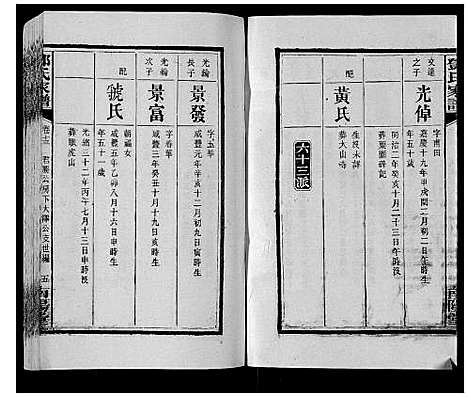 鄧氏家譜
文達
之子
光倬
字甫田
嘉慶十九年甲戌閏二月初二日午時生
同治二年癸亥十月二十三日時歿
年五十歲
配
黃氏
生歿未詳
葬大山寺
六十三派
光綸
長子
景發
字玉華
咸豐元年辛亥十二月初九日寅時生
光綸
次子
景富
字春華
咸豐三年癸丑十月初九日亥時生
配
號氏
咸豐五年乙卯八月十六日申時生
光緒三十二年丙午七月十三日申時歿
年五十一歲
葬龍虎山
鄧氏家譜
卷十三
五
南陽堂